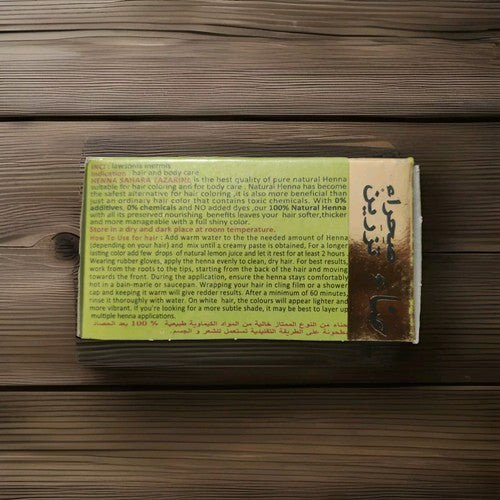 INCI : lawsonia inermis
Indication : hair and body care
HENNA SAHARA TAZARINE is the best quality of pure natural Henna
suitable for hair coloring and for body care . Natural Henna has become
the safest alternative for hair coloring ,it is also more beneficial than
just an ordinary hair color that contains toxic chemicals. With 0%
additives, 0% chemicals and NO added dyes ,our 100% Natural Henna
with all its preserved nourishing benefits leaves your hair softer,thicker
and more manageable with a full shiny color.
Store in a dry and dark place at room temperature.
How To Use for hair : Add warm water to the the needed amount of Henna
(depending on your hair) and mix until a creamy paste is obtained. For a longer
lasting color add few drops of natural lemon juice and let it rest for at least 2 hours.
Wearing rubber gloves, apply the henna evenly to clean, dry hair. For best results,
work from the roots to the tips, starting from the back of the hair and moving
towards the front. During the application, ensure the henna stays comfortably
hot in a bain-marie or saucepan. Wrapping your hair in cling film or a shower
cap and keeping it warm will give redder results. After a minimum of 60 minutes,
rinse it thoroughly with water. On white hair, the colours will appear lighter and
more vibrant. If you're looking for a more subtle shade, it may be best to layer up
multiple henna applications.
حناء من النوع الممتاز خالية من المواد الكيماوية طبيعية 100 % بعد الحصاد
مطحونة على الطريقة التقليدية تستعمل للشعر و الجسم.
صحراء
تزرين